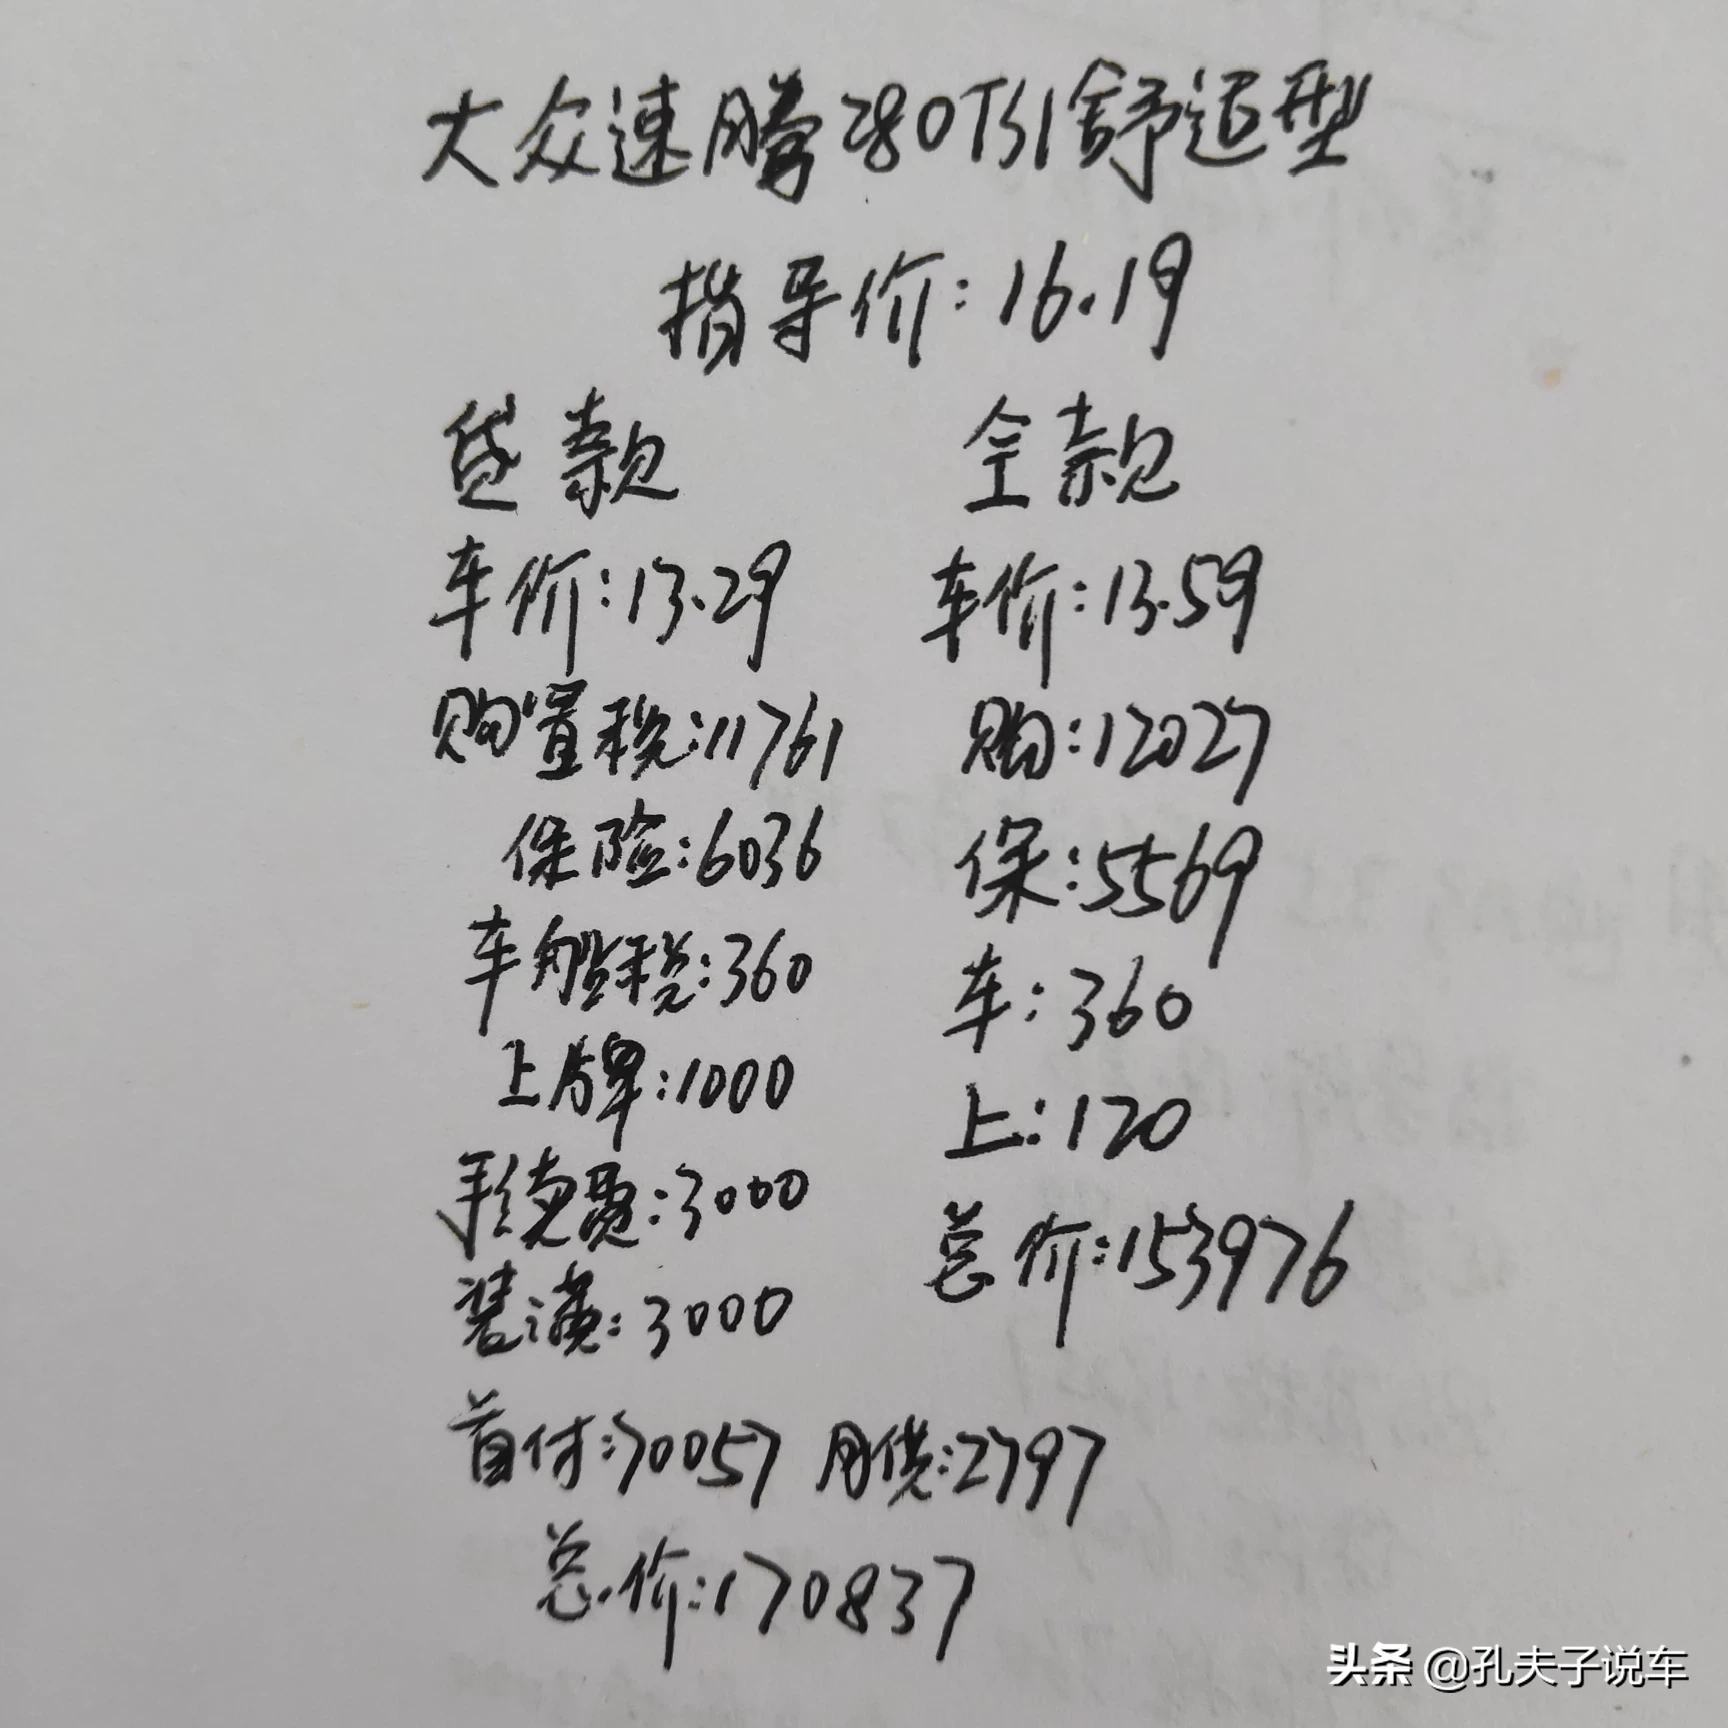 大众速腾280TSI舒适型
指导价:16.19
贷款
车价:13.29
购置税:11761
保险:6036
车船税:360
上牌:1000
手续费:3000
装潢:3000
首付:70057 月供:2797
总价:170837
全款
车价:13.59
购:12027
保:5569
车:360
上:120
总价:153976
头条 @孔夫子说车